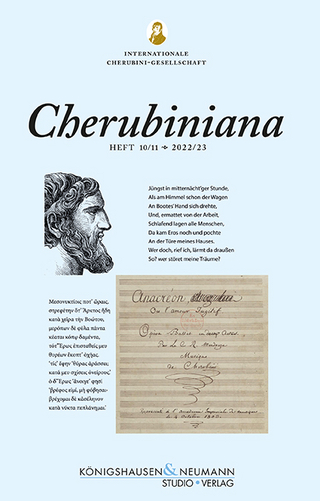 INTERNATIONALE
CHERUBINI-GESELLSCHAFT
Cherubiniana
HEFT 10/11 → 2022/23
Jüngst in mitternächt'ger Stunde,
Als am Himmel schon der Wagen
An Bootes' Hand sich drehte,
Und, ermattet von der Arbeit,
Schlafend lagen alle Menschen,
Da kam Eros noch und pochte
An der Türe meines Hauses.
Wer doch, rief ich, lärmt da draußen
So? wer störet meine Träume?
Μεσονυκτίοις ποτ' ὥραις,
στρεφέτην ὅτ' Ἄρκτος ἤδη
κατὰ χεῖρα τὴν Βοώτου,
μερόπων δὲ φῦλα πάντα
κέαται κόπῳ δαμέντα,
τότ' Ἔρως ἐπισταθείς μευ
θυρέων ἔκοπτ' ὀχῆας.
'τίς' ἔφην 'θύρας ἀράσσει;
κατά μευ σχίσεις ὀνείρους.'
ὁ δ' Ἔρως 'ἄνοιγε' φησί
'βρέφος εἰμί, μὴ φόβησαι·
βρέχομαι δὲ κἀσέληνον
κατὰ νύκτα πεπλάνημαι.'
Anacréon
Ou l'amour Fugitif
Opéra Ballet en deux Actes
Musique
de Cherubini
KÖNIGSHAUSEN & NEUMANN
STUDIO · VERLAG